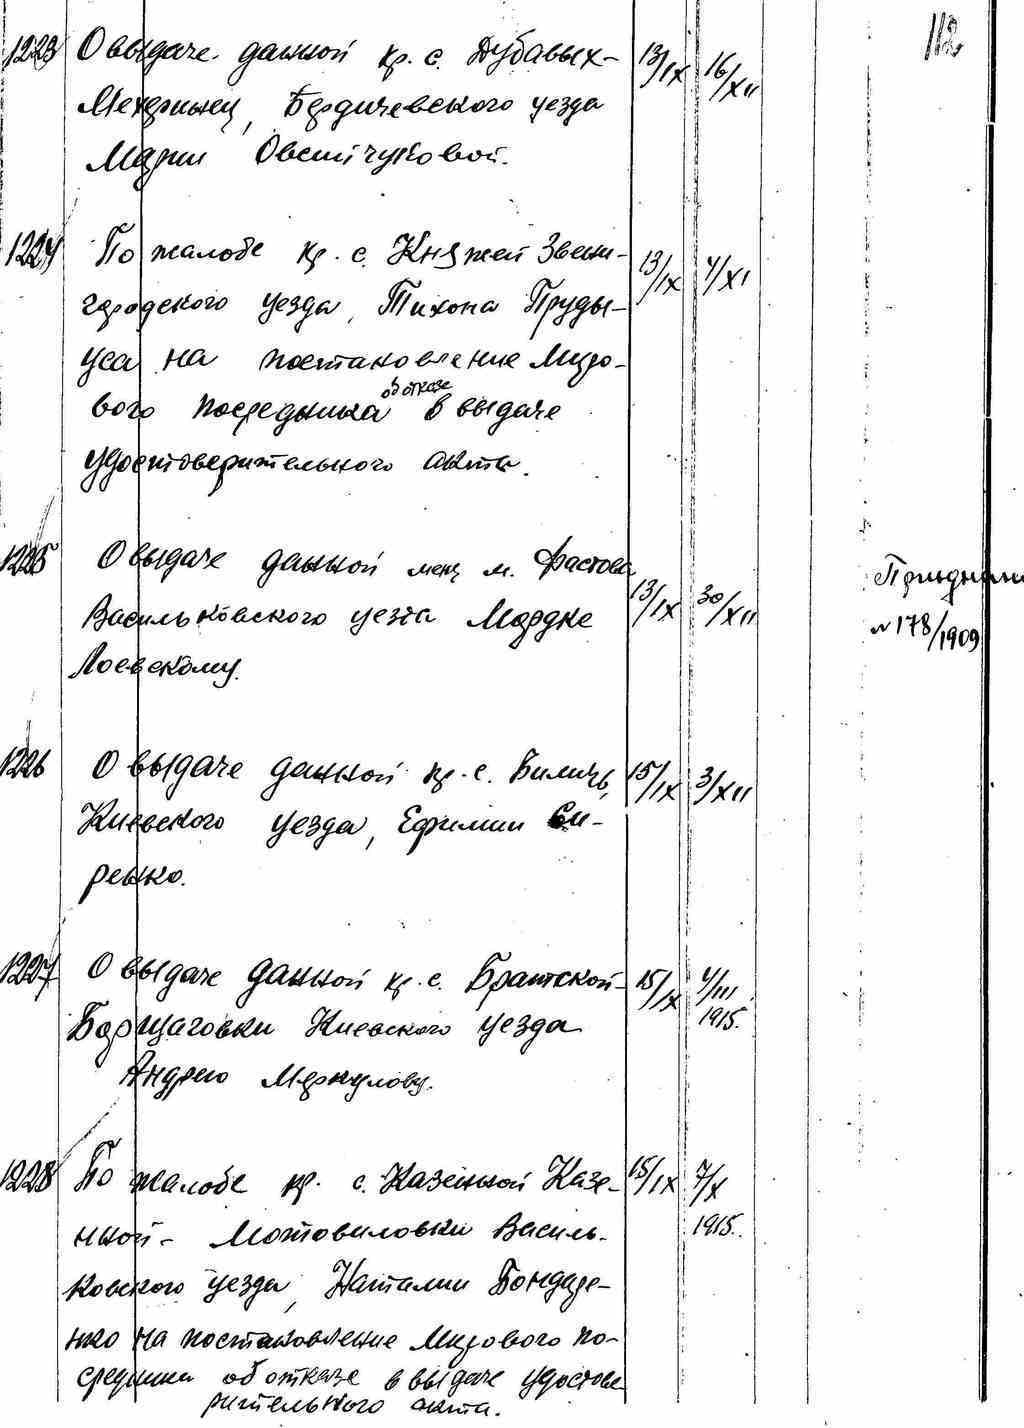 112
1223 О выдаче данной кр. с. Дубовых- 13/IX 16/XII
Махаринец, Бердичевского уезда
Марии Овсийчуковой.
1224 По жалобе кр. с. Княжей Звени- 13/IX 4/XI
городского уезда, Тихона Пруды-
уса на постановление Миро-
вого посредника об отказе в выдаче
удостоверительного акта.
1225 О выдаче данной мещ. м. Фастова
Васильковского уезда Мордке 13/IX 30/XII
Лоевскому.
№ 178/1909
1226 О выдаче данной кр. с. Билич, 15/IX 3/XII
Киевского уезда, Ефимии Си-
ренко.
1227 О выдаче данной кр. с. Братской- 15/IX 4/III
Борщаговки Киевского уезда 1915.
Андрею Меркулову.
1228 По жалобе кр. с. Казенной Казе- 15/IX 7/X
нной- Мотовиловки Василь- 1915.
ковского уезда, Наталии Бондаре-
нко на постановление Мирового по-
средника об отказе в выдаче удостове-
рительного акта.